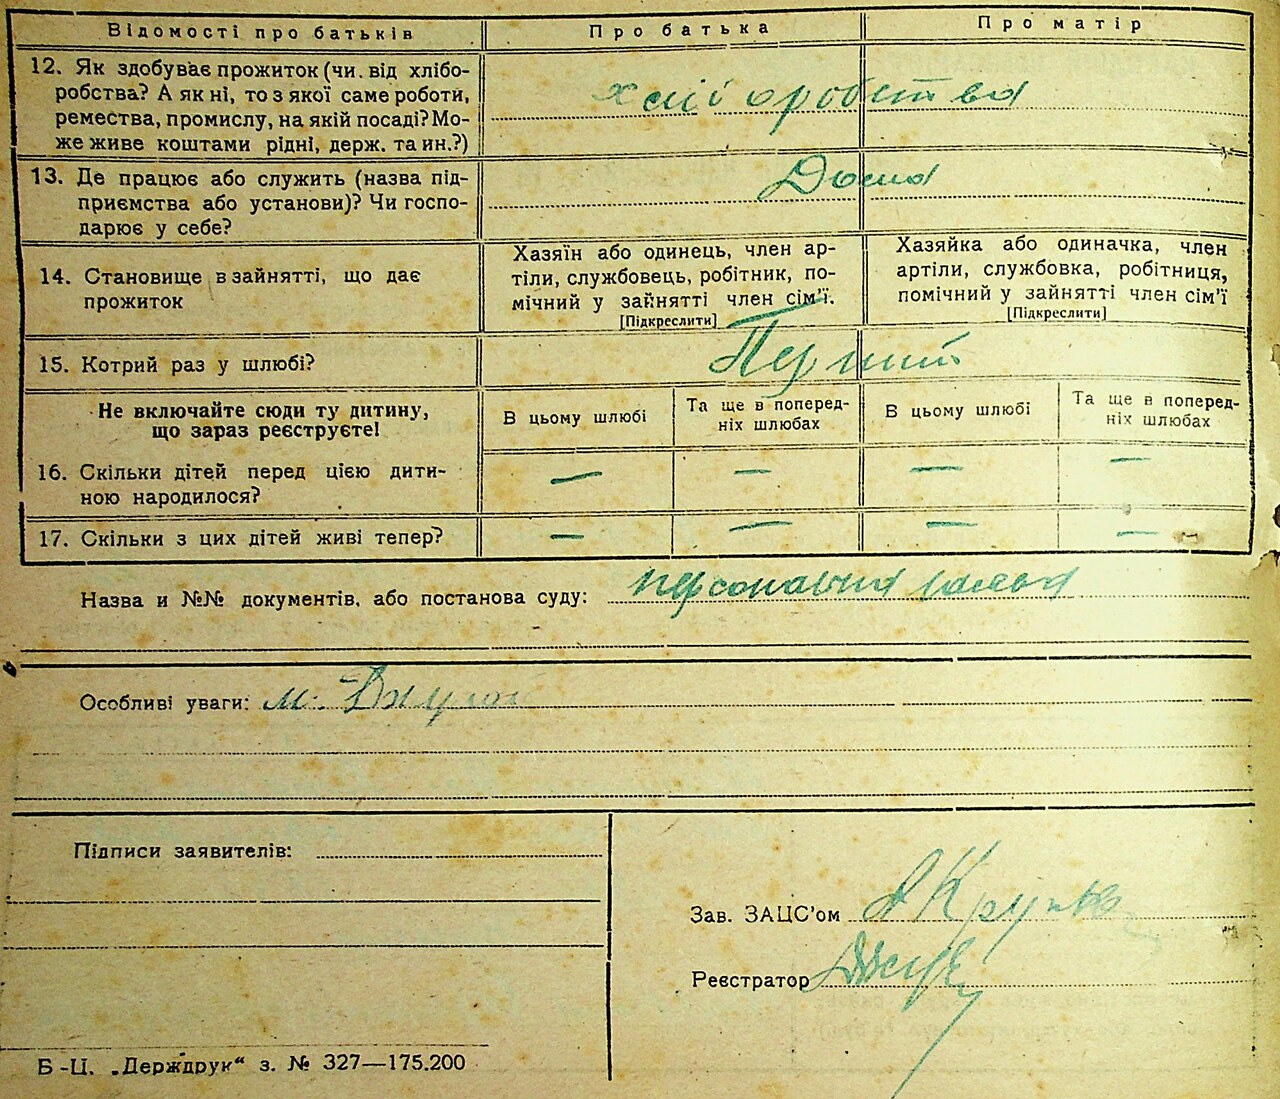 Відомості про батьків
Про батька
Про матір
12. Як здобуває прожиток (чи від хлібо-
робства? А як ні, то з якої саме роботи,
ремества, промислу, на якій посаді? Мо-
же живе коштами рідні, держ. та ин.?)
хліборобства
13. Де працює або служить (назва під-
приємства або установи)? Чи госпо-
дарює у себе?
Дома
14. Становище в зайнятті, що дає
прожиток
Хазяїн або одинець, член ар-
тіли, службовець, робітник, по-
мічний у зайнятті член сім'ї.
[Підкреслити]
Хазяйка або одиначка, член
артіли, службовка, робітниця,
помічний у зайнятті член сім'ї
[Підкреслити]
15. Котрий раз у шлюбі?
Перший
Не включайте сюди ту дитину,
що зараз реєструєте!
В цьому шлюбі
Та ще в поперед-
ніх шлюбах
В цьому шлюбі
Та ще в поперед-
ніх шлюбах
16. Скільки дітей перед цією дити-
ною народилося?
— — — —
17. Скільки з цих дітей живі тепер?
— — — —
Назва и №№ документів, або постанова суду: персональна
Особливі уваги: м.
Підписи заявителів:
Зав. ЗАЦС'ом
Реєстратор
Б-Ц. „Держдрук“ з. № 327—175.200